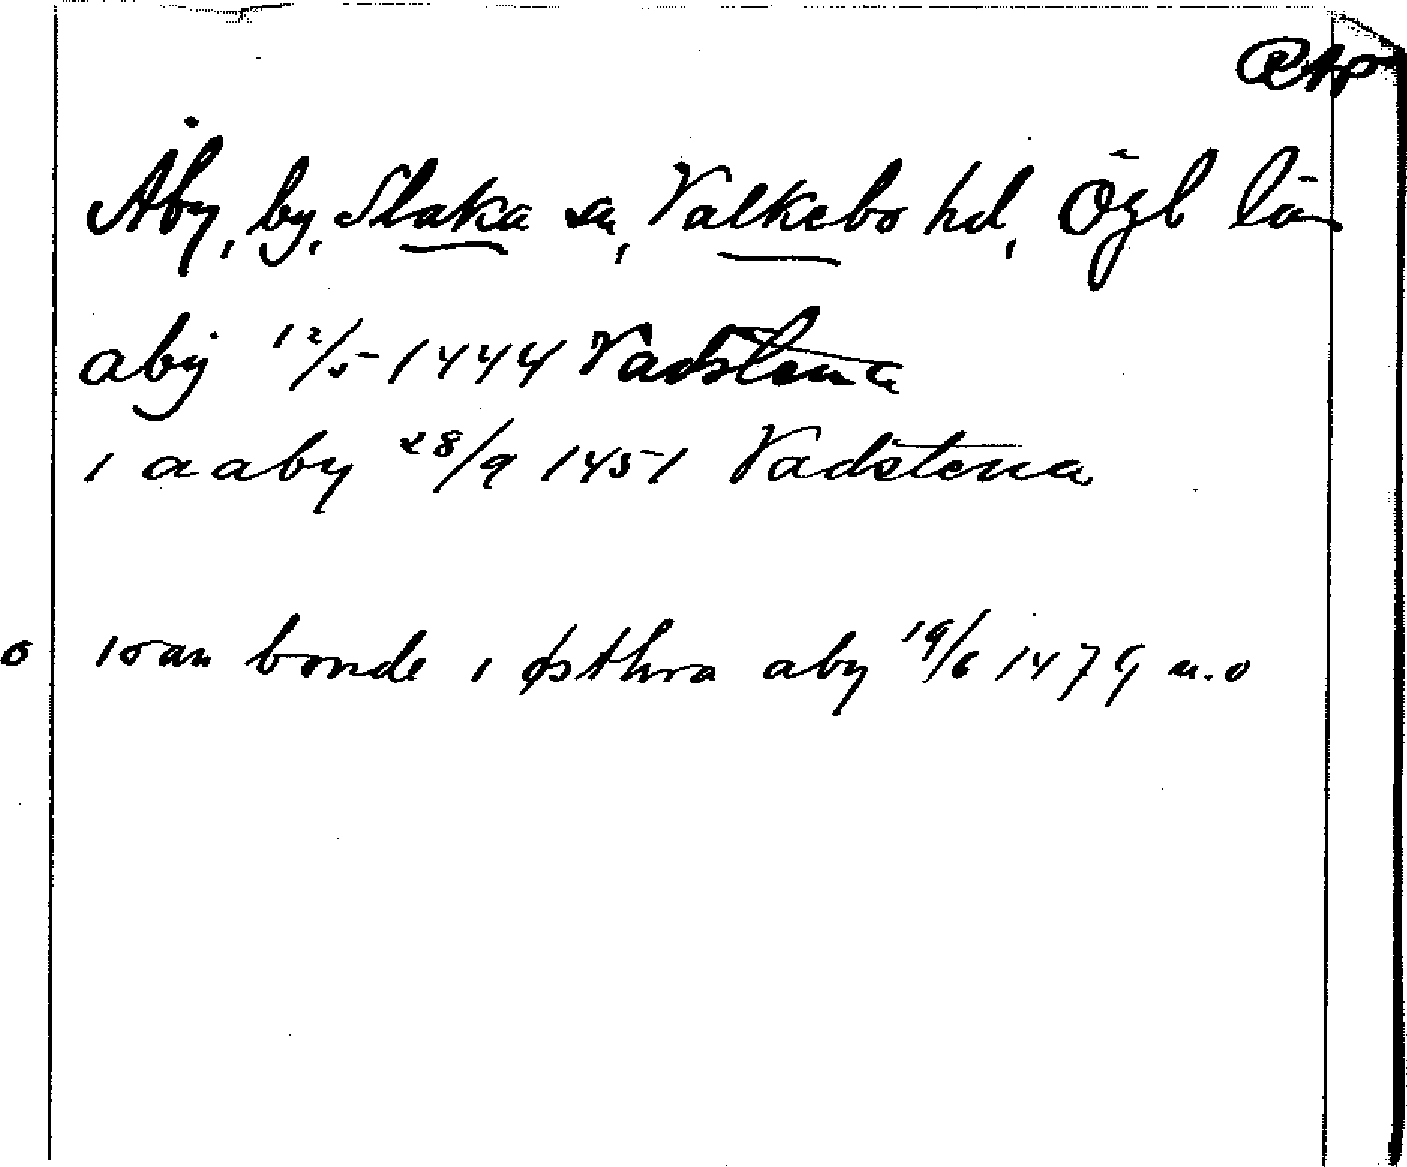 RAp
Åby, by, Slaka sn, Valkebo hd, Ögl län
abÿ 12/5 1444 Vadstena
i aaby 28/9 1451 Vadstena
o ioan bonde i østhra aby 19/6 1479 u.o